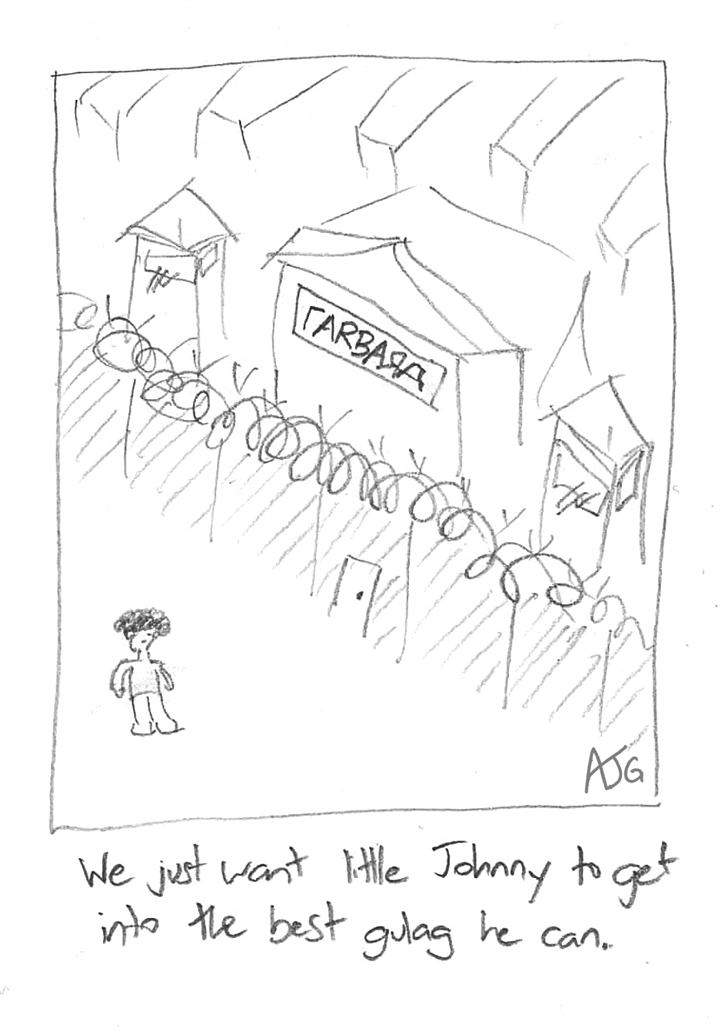 ГАRВАЯД
AJG
We just want little Johnny to get
into the best gulag he can.